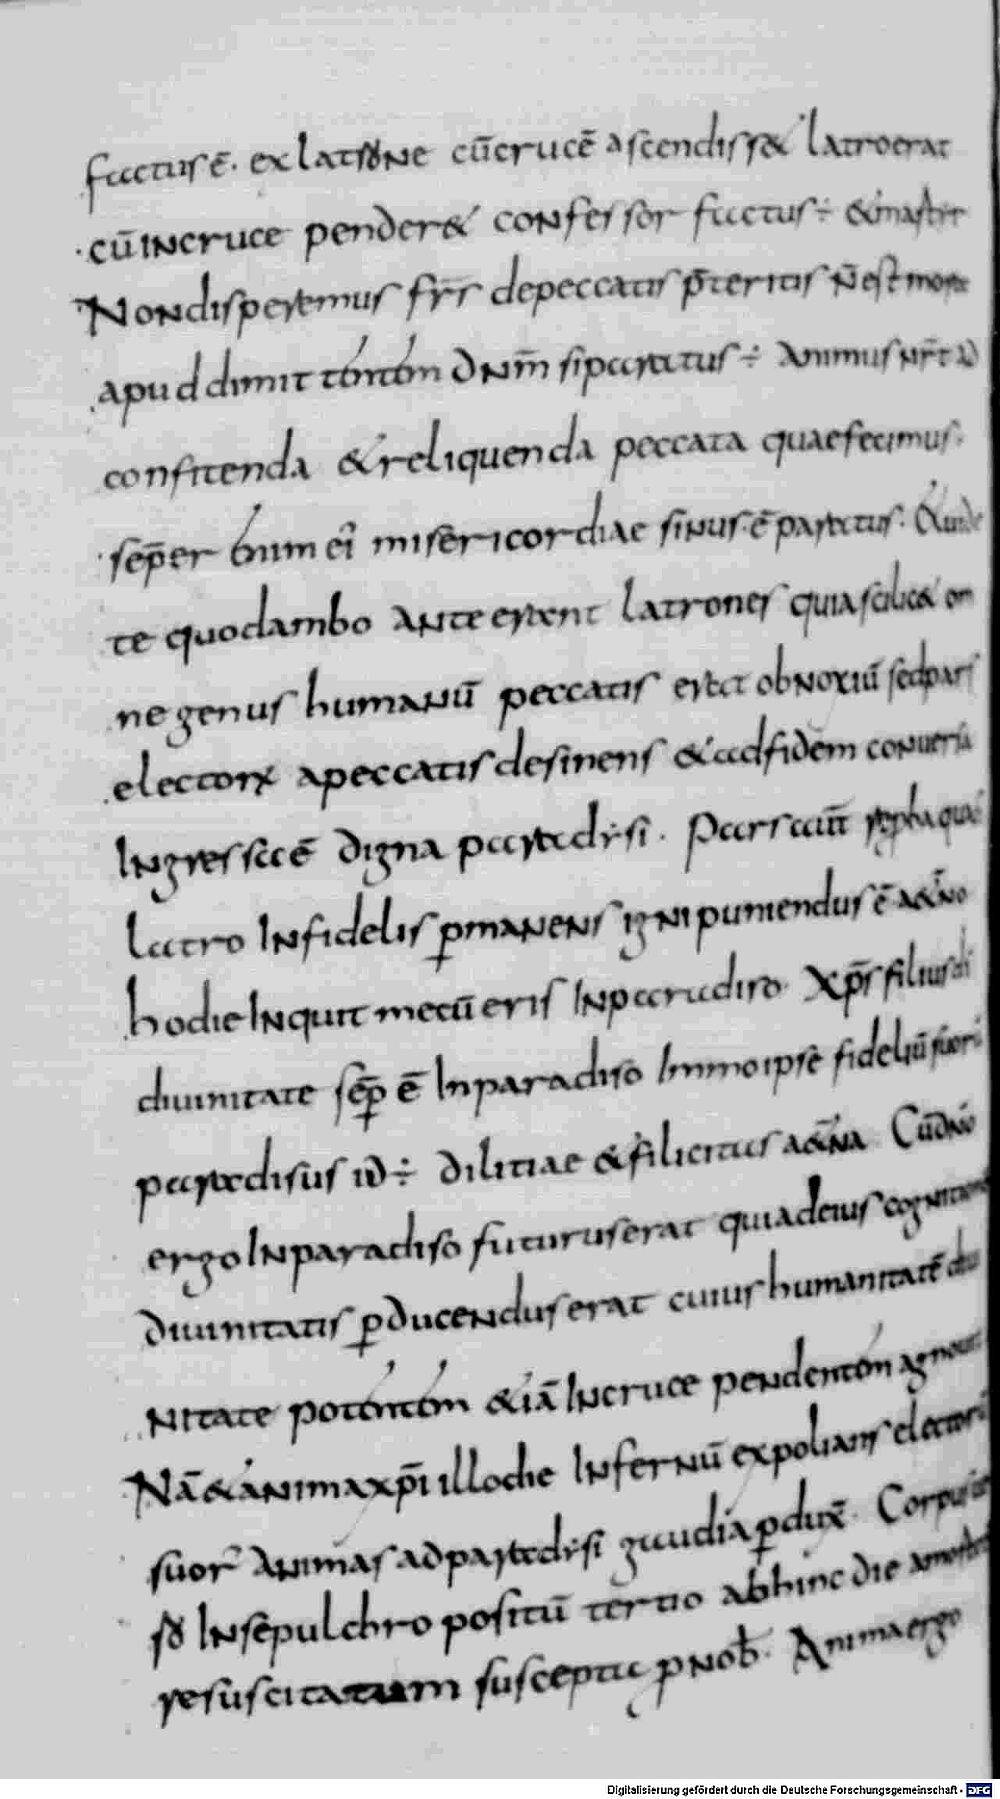 factus ē. ex latrone cū crucē ascendiss& latro erat
cū in cruce pender& confessor factus ÷ &
Non disperemus fr̄s de peccatis p̄teritis n̄ est
apud dimittentem dn̄m si paratus ÷ animus nr̄ ad
confitenda & reliquenda peccata quae fecimus.
sēper enim ei misericordiae sinus ē paratus. &
te quod ambo ante erant latrones quia scilic& om
ne genus humanū peccatis erat obnoxiū sed pars
electorꝝ a peccatis desinens & ad fidem
Ingressa ē digna paradisi. Pars aut̄
latro Infidelis ꝑmanens igni puniendus ē
hodie Inquit mecū eris In paradiso. Xp̄s filius di
diuinitate sēp ē In paradiso Immo ipse fideliū suorū
paradisus id ÷ dilitiae & filicitas a&̄na Cū dn̄o
ergo In paradiso futurus erat quia deius
diuinitatis ꝑducendus erat cuius humanitatē
nitate potentem & iā In cruce pendentem
Nā & anima xp̄i illo die Infernū expolians electorū
suor̄ animas ad paradisi gaudia ꝑdux̄. Corpus
so In sepulchro positū tertio abhinc die
resuscitatum suscepta ꝓ nob̄. Anima ergo
Digitalisierung gefördert durch die Deutsche Forschungsgemeinschaft - DFG